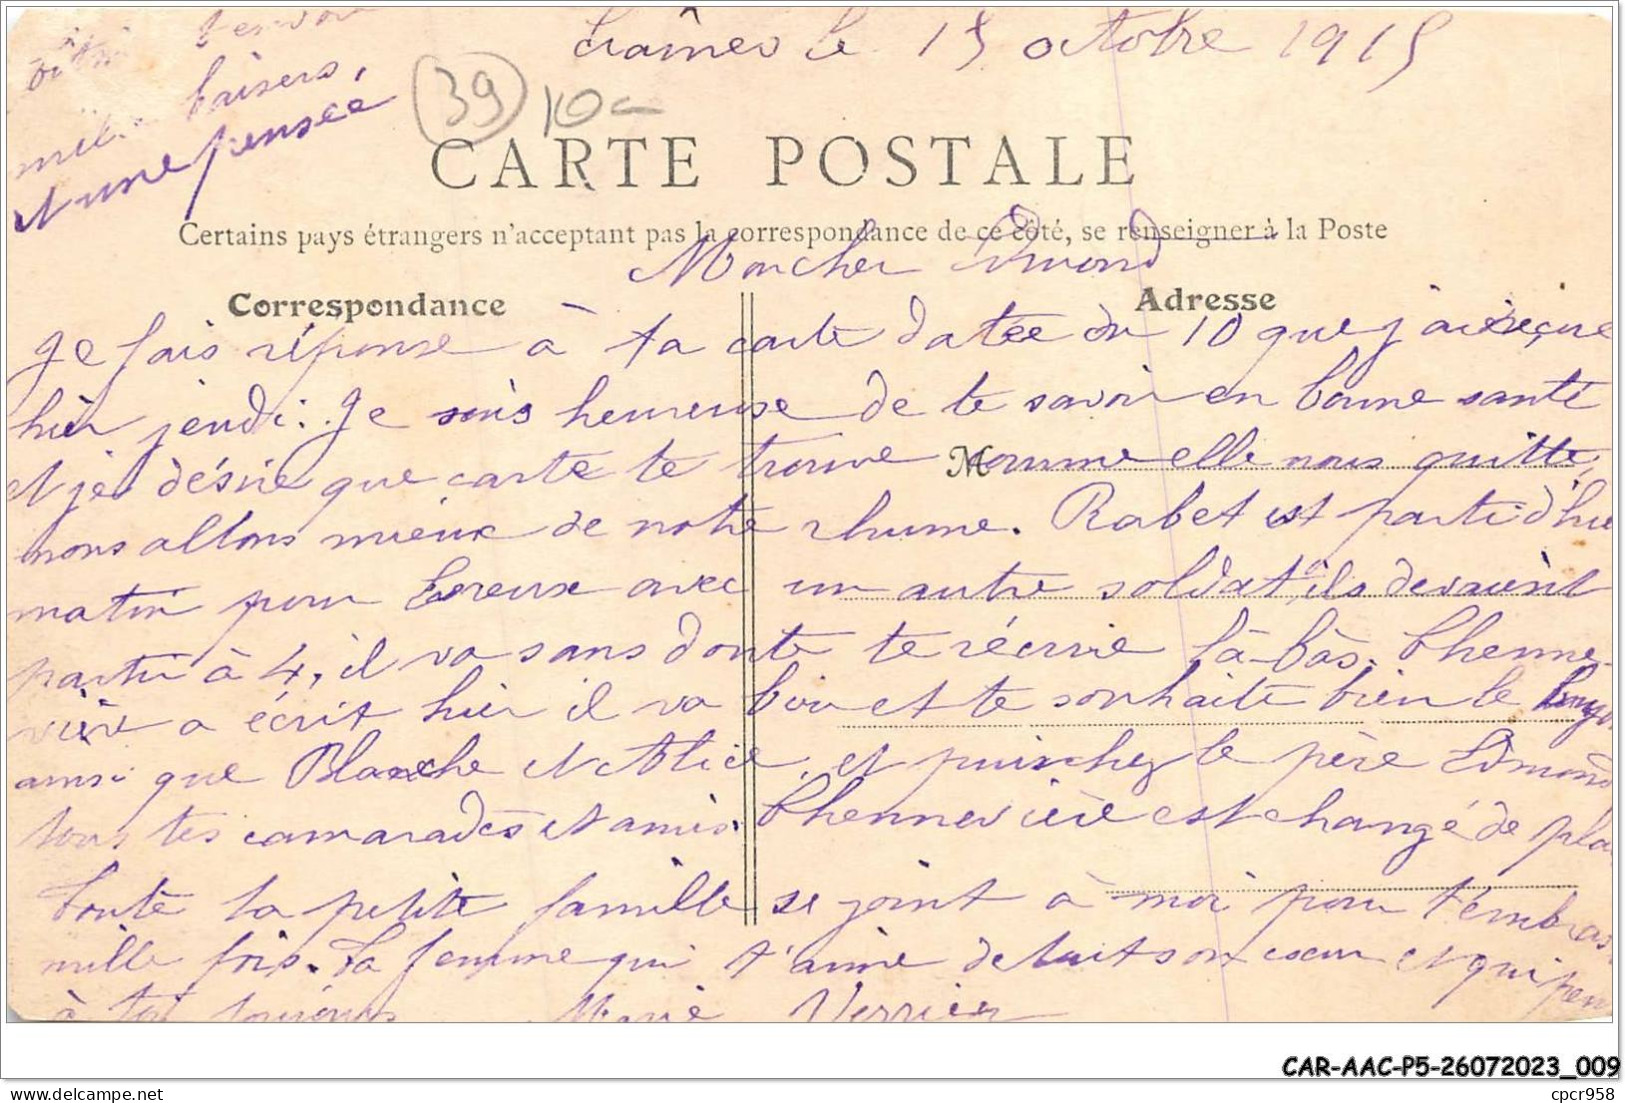 le 15 octobre 1915
mille baisers,
et une pensée
39 10
CARTE POSTALE
Certains pays étrangers n'acceptent pas la correspondance de ce côté, se renseigner à la Poste
Mon cher
Correspondance Adresse
Je fais réponse à ta carte datée du 10 que j'ai reçue
hier jeudi. Je suis heureuse de te savoir en bonne santé
et je désire que carte te trouve M comme elle nous quitte,
nous allons mieux de notre rhume. Rabet est parti d'hier
matin pour Evreux avec un autre soldat, ils devaient
partir à 4, il va sans doute te récrire là-bas. Chenne-
vière a écrit hier il va bien et te souhaite bien le
ainsi que Blanche et Alice, et puis chez le père Edmond
tous tes camarades et amis. Chennevière est changé de
Toute la petite famille se joint à moi pour
mille fois. Ta femme qui t'aime de tout son cœur et qui
à toi toujours Marie Verrier
CAR-AAC-P5-26072023_009
cpcr958